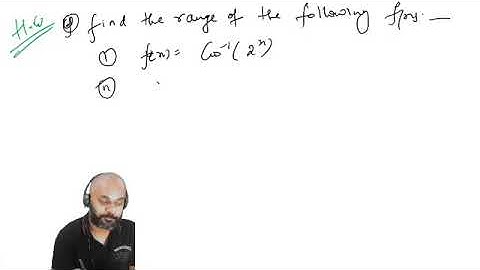 H.W Q find the range of the following f(x)s. —
(i) f(x) = Cos⁻¹(2ˣ)
(ii)